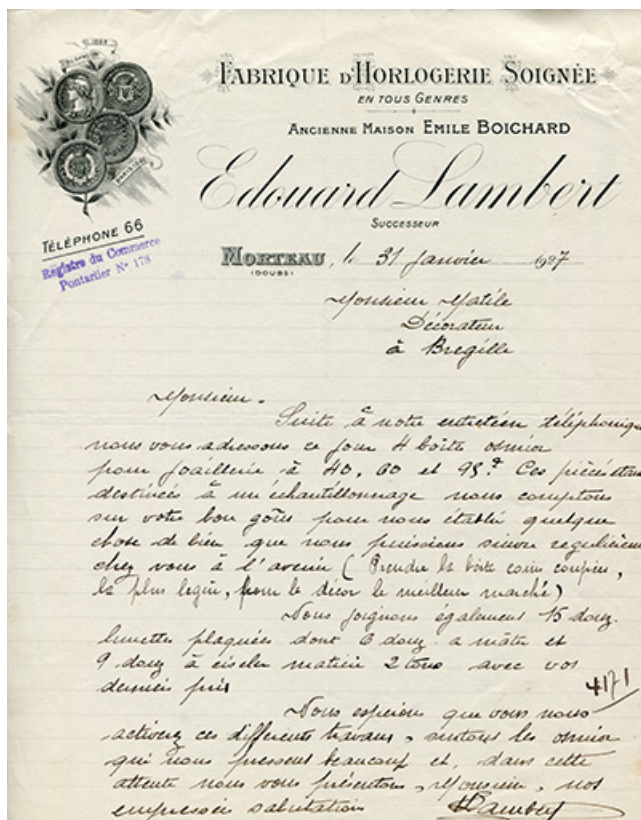 FABRIQUE D'HORLOGERIE SOIGNÉE
EN TOUS GENRES
ANCIENNE MAISON EMILE BOICHARD
Edouard Lambert
SUCCESSEUR
TÉLÉPHONE 66
Registre du Commerce
Pontarlier N° 178
MORTEAU, le 31 Janvier 1927
(DOUBS)
Monsieur Matile
Décorateur
à Bregille
Monsieur.
Suite à notre entretien téléphonique
nous vous adressons ce jour 4 boîte osmior
pour joaillerie à 40, 60 et 95f Ces pièces étant
destinées à un échantillonnage nous comptons
sur votre bon goût pour nous établir quelque
chose de bien que nous puissions suivre regulièrem
chez vous à l'avenir (Prendre la boîte coins coupées,
la plus légère, pour le décor le meilleur marché)
Nous joignons également 15 douz.
lunettes plaquées dont 6 douz. a mâter et
9 douz à ciseler matière 2 tons avec vos
derniers prix
4171
Nous espérons que vous nous
activerez ces différents travaux, surtout les osmior
qui nous pressent beaucoup et, dans cette
attente nous vous présentons, Monsieur, nos
empressées salutations
Lambert